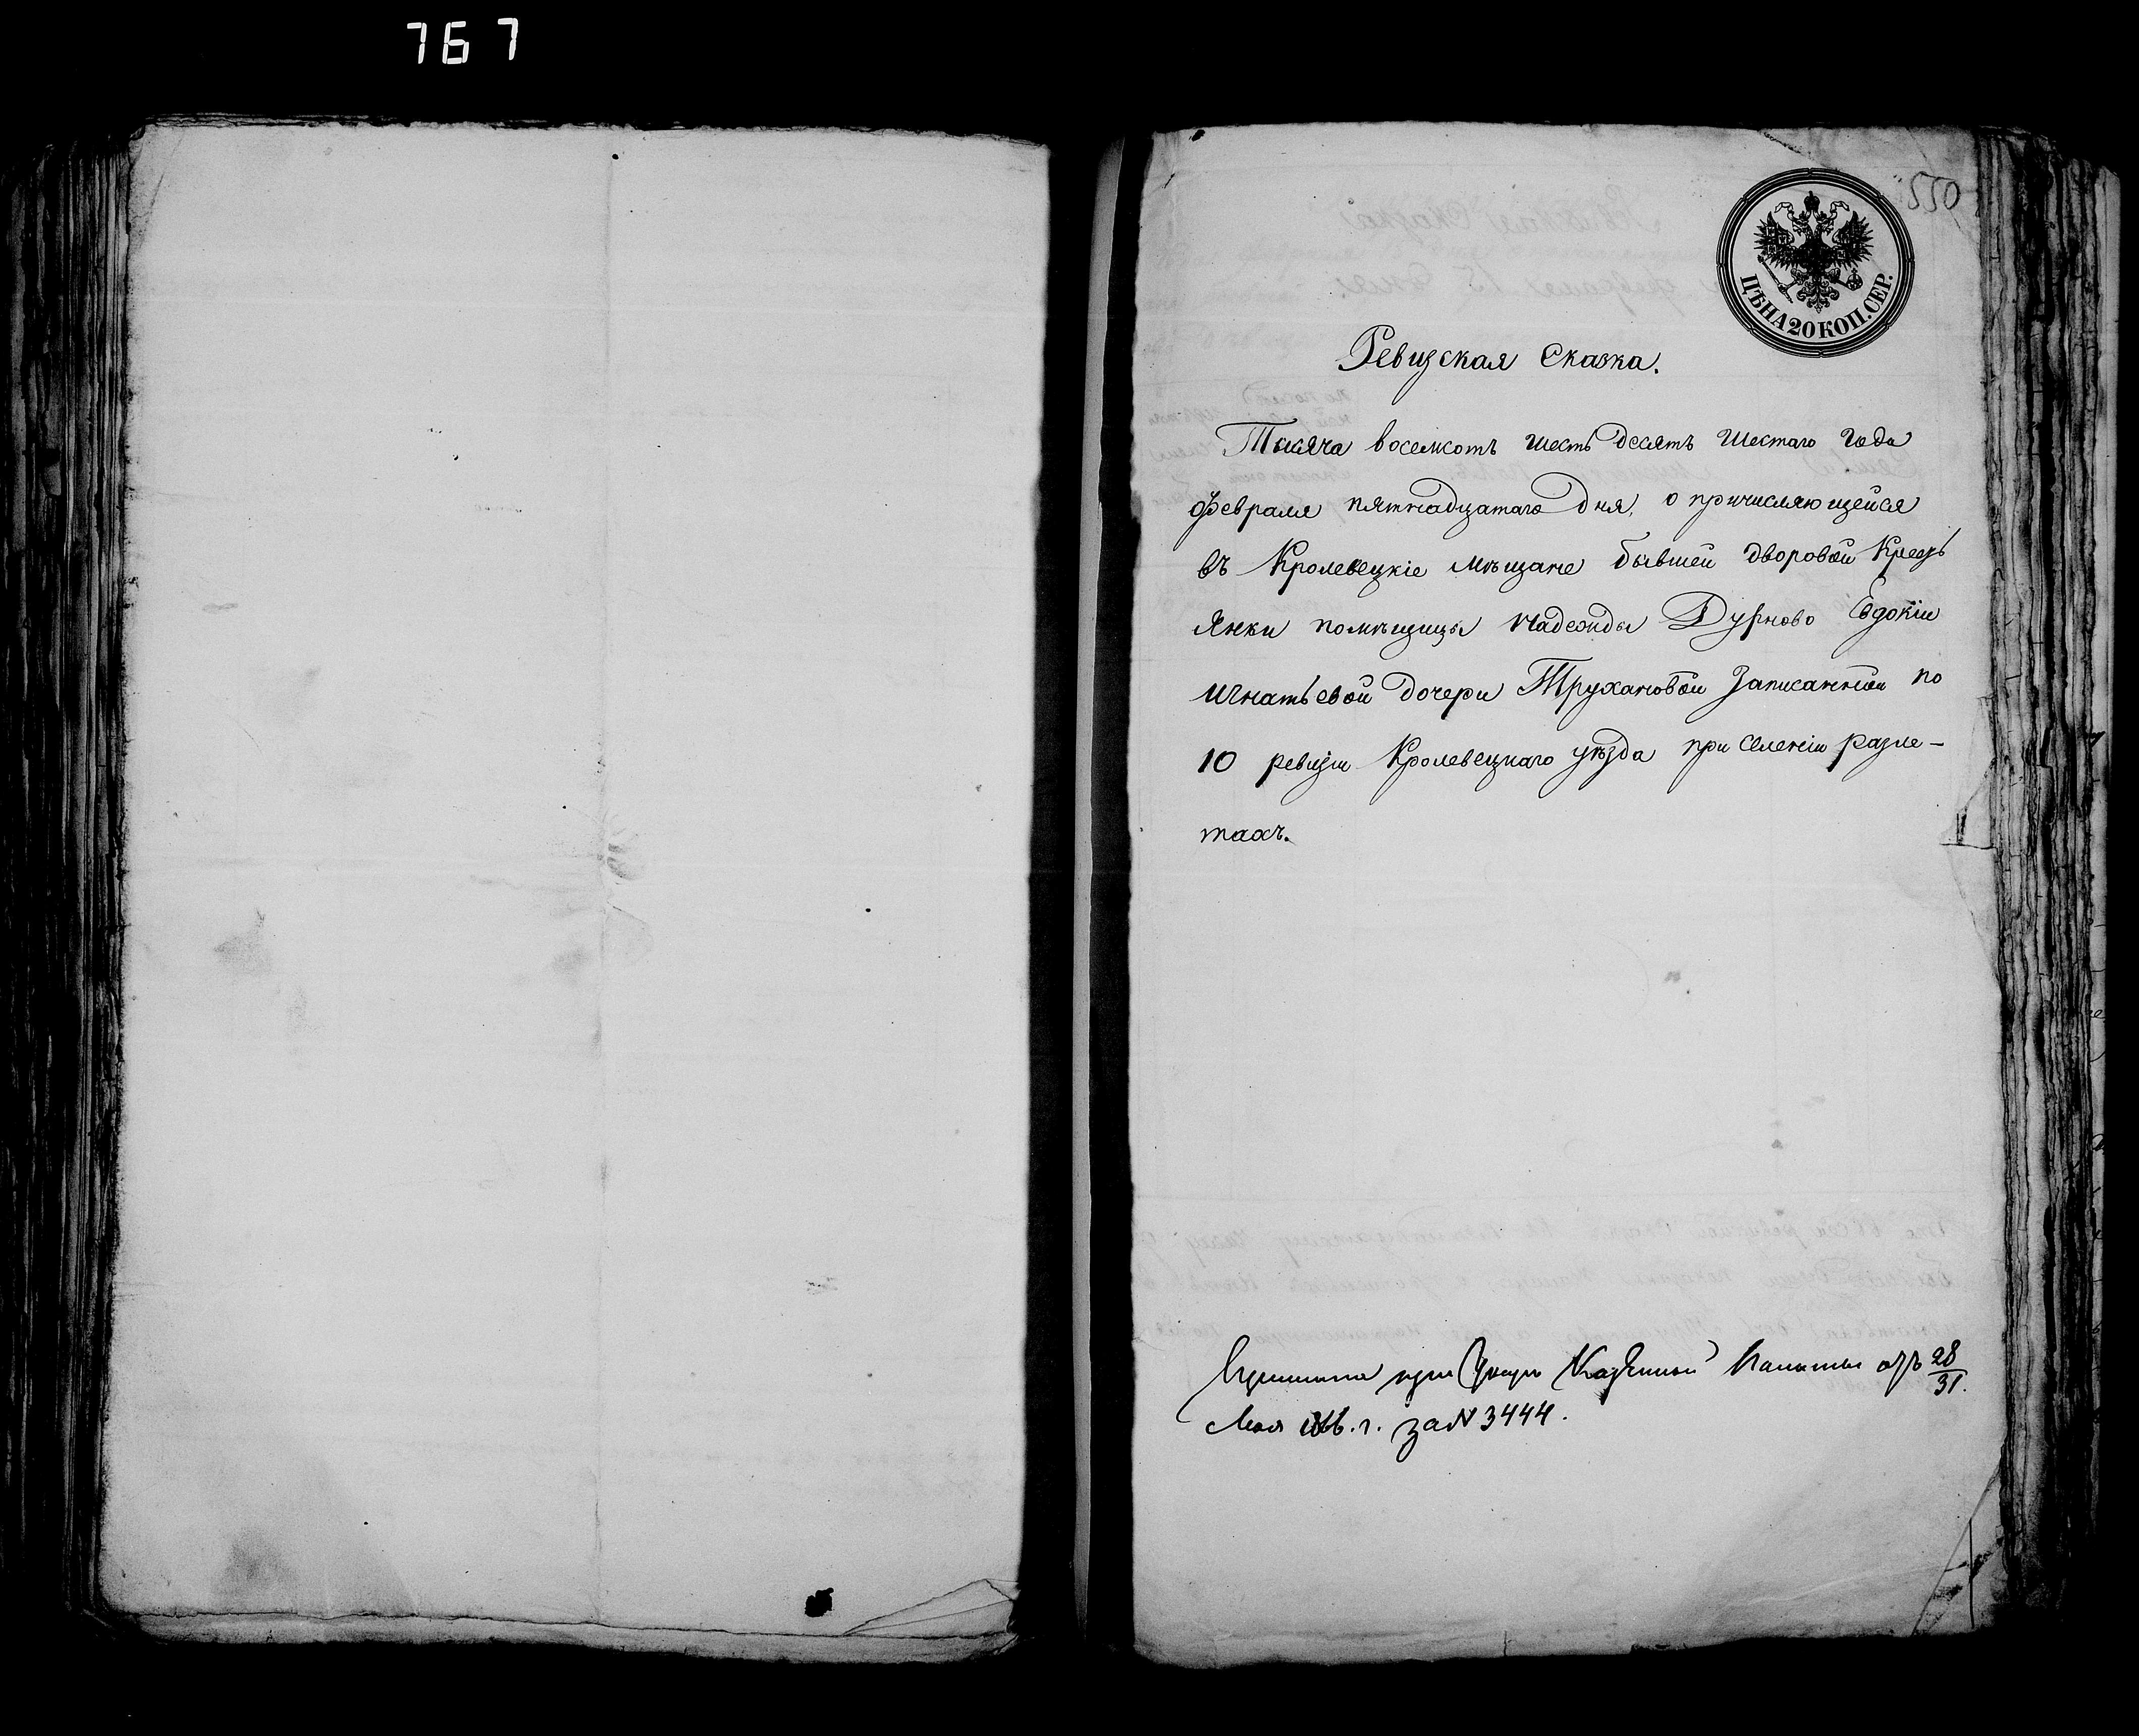 767
550
ЦѢНА 20 КОП. СЕР.
Ревизская Сказка.
Тысяча восемсотъ шестьдесятъ шестаго года
февраля пятнадцатаго дня, о причисляющейся
въ Кролевецкіе мѣщане бывшей дворовой Кресть
янки помѣщицы Надежды Дурново Евдокіи
Игнатьевой дочери Трухановой записанной по
10 ревизіи Кролевецкаго уѣзда при селеніи разле-
тахъ.
при Указѣ Казенной Палаты отъ 28/31
Мая 1866 г. за N 3444.